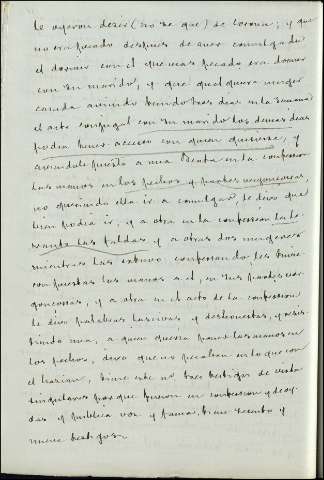 le oyeron dezir (no se que) de Corona; y que
no era pecado despues de aver comulgado
el dormir con el que mas pecado era dormir
con su marido, y que qualquiera muger
casada aviendo tenido tres dias en la semana
el acto conjugal con su marido los demas dias
podia tener acceso con quien quisiesse, y
aviendole puesto a una Beata en la confession
las manos en los pechos y partes vergonçosas,
no queriendo ella ir a comulgar le dixo que
bien podia ir, y a otra en la confession la le
vantó las faldas y a otras dos mugeres
mientras las estuvo confessando les tuvo
puestas las manos a el, en sus partes ver
gonçosas, y a otra en el acto de la confession
le dixo palabras lascivas y deshonestas, y resis
tiendo una, a quien queria poner las manos en
los pechos, dixo que no pecaban en lo que con
el hazian, tiene este nº tres testigos de vista
singulares pero que fueron en confession y
das y publica voz y fama, tiene treinta y
nueve testigos.